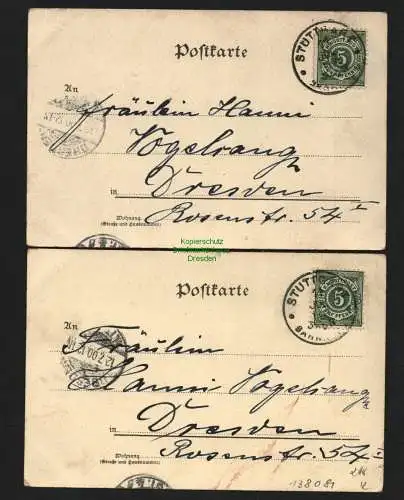 Postkarte
STUTTGART
5
An
Fräulein Hanni
Vogelsang
in Dresden
Wohnung
(Straße und Hausnummer)
Rosenstr. 54 I
Kopierschutz
Dresden
Postkarte
STUTTGART
5
BAHNH
An
Fräulein
Hanni Vogelsang
in Dresden
Wohnung
(Straße und Hausnummer)
Rosenstr. 54 I
138081